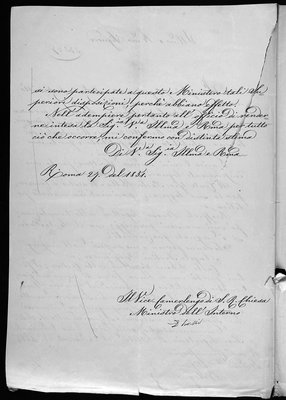 si sono partecipate a questo Ministero tali Su-
periori disposizioni perchè abbiano effetto.
Nell'adempiere pertanto all'officio di render-
ne intesa la Sig.ria V.a Illma e Rma per tutto
ciò che occorre mi confermo con distinta stima
Di V.a Sig.ria Illma e Rma
Roma 29 del 1834.
Il Vice Camerlengo di S. R. Chiesa
Ministro dell'Interno